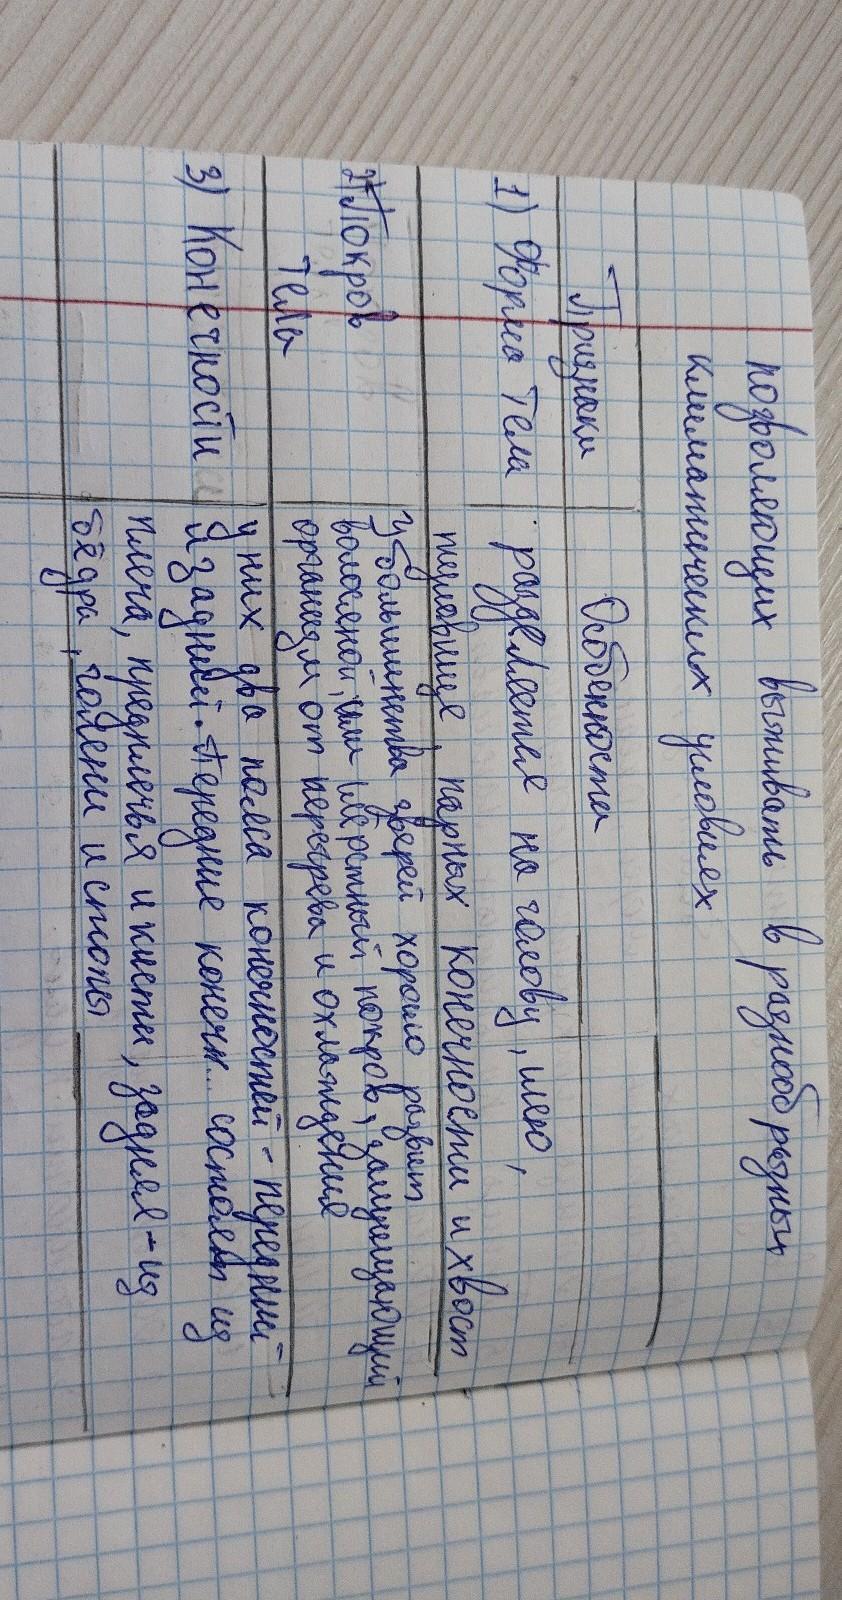 позволяющих выживать в разнообразных
климатических условиях
Признаки
Особенности
1) Форма тела
разделяется на голову, шею,
туловище, парных конечности и хвост
2) Покров
тела
у большинства зверей хорошо развит
волосяной, или шёрстный покров, защищающий
организм от перегрева и охлаждения
3) Конечности
у них два пояса конечностей - передний
и задний. Передние конечн... состоят из
плеча, предплечья и кисти, задняя - из
бёдра, голени и стопы